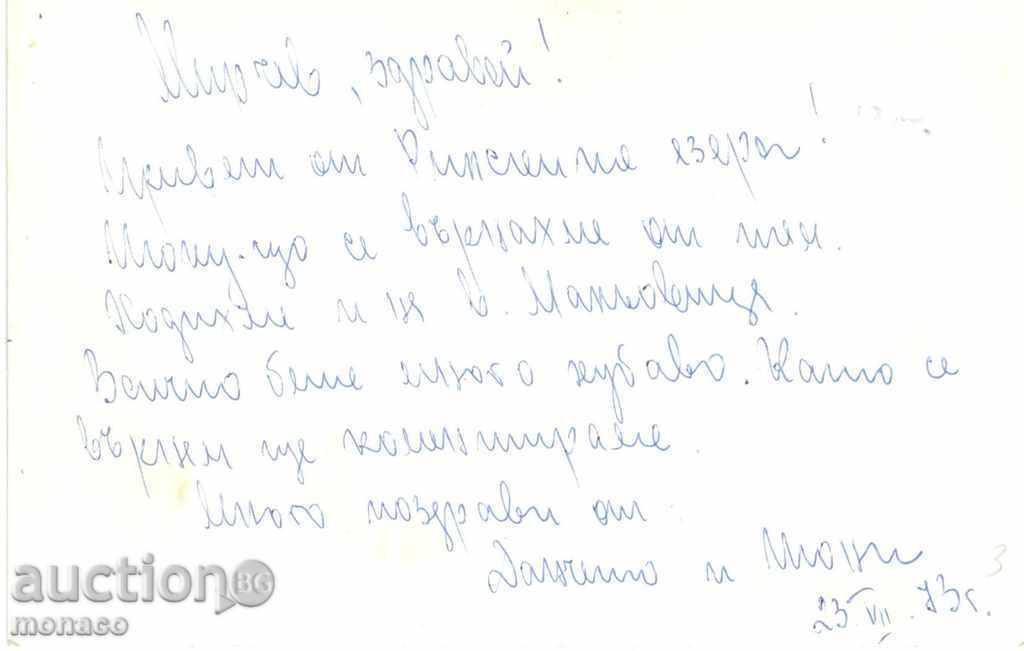 Мирчев, здравей!
Привет от Рилските езера!
Току-що се върнахме от тях.
Ходихме и на в. Мальовица.
Всичко беше много хубаво. Като се
върнем ще коментираме.
Много поздрави от:
Данчето и Тони
23.VII.73г.
3
auction BG
monaco